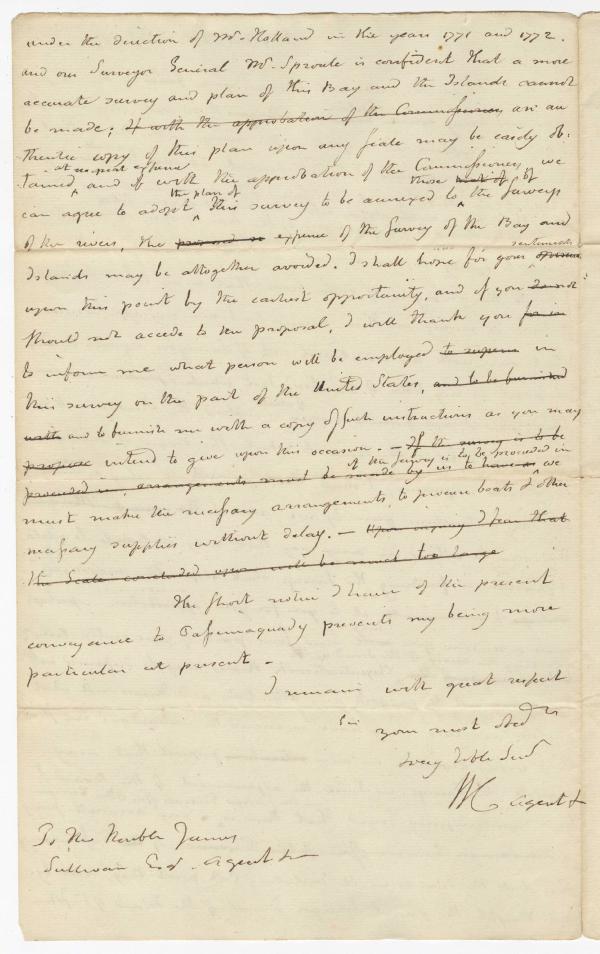 under the direction of Mr. Holland in the years 1771 and 1772.
and our Surveyor General Mr. Sproule is confident that a more
accurate survey and plan of this Bay and the Islands cannot
be made; If with the approbation of the Commissioners as an au
thentic copy of this plan upon any scale may be easily ob-
at no great expence
tained and if with the approbation of the Commissioners, we
the plan of those
can agree to adopt this survey to be annexed to the Surveys of
of the rivers, the expence of the Survey of the Bay and
sentiments
Islands may be altogether avoided. I shall hope for your opinion
upon this point by the earliest opportunity, and if you do not
should not accede to this proposal, I will thank you for in
to inform me what person will be employed to in
this survey on the part of the United States, and to be furnished
with and to furnish me with a copy of such instructions as you may
propose intend to give upon this occasion. — If the survey is to be
if the Survey is to be proceeded in
proceeded in, arrangements must be made by us to have we
must make the necessary arrangements, to procure boats & other
necessary supplies without delay. — Upon inquiry I fear that
the Scale concluded upon will be much too large
The short notice I have of the present
conveyance to Passimaquady prevents my being more
particular at present —
I remain with great respect
Sir
your most Obedt
very hble Servt
WC agent &
To The Honble James
Sullivan Esqr. agent &